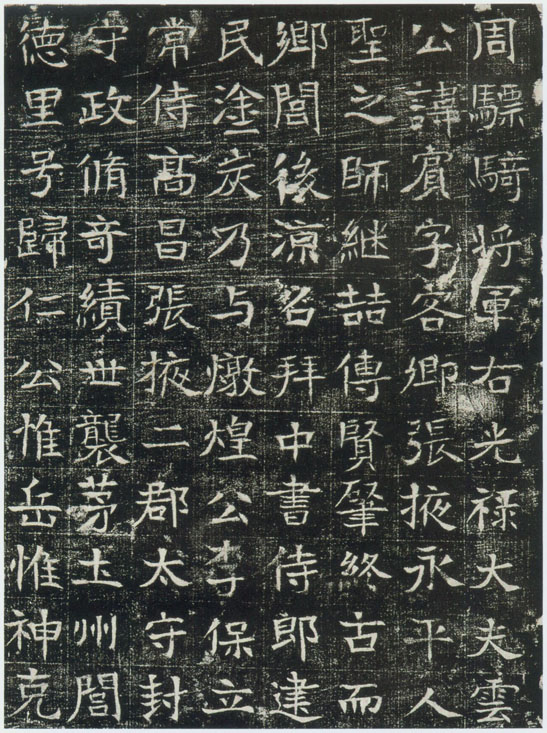 周驃騎将軍右光禄大夫雲
公諱賓字客卿張掖永平人
聖之師継喆傳賢肇終古而
鄉閭後涼召拜中書侍郎建
民塗炭乃与燉煌公李保立
常侍髙昌張掖二郡太守封
守政脩奇績世襲茅土州閭
徳里号歸仁公惟岳惟神克